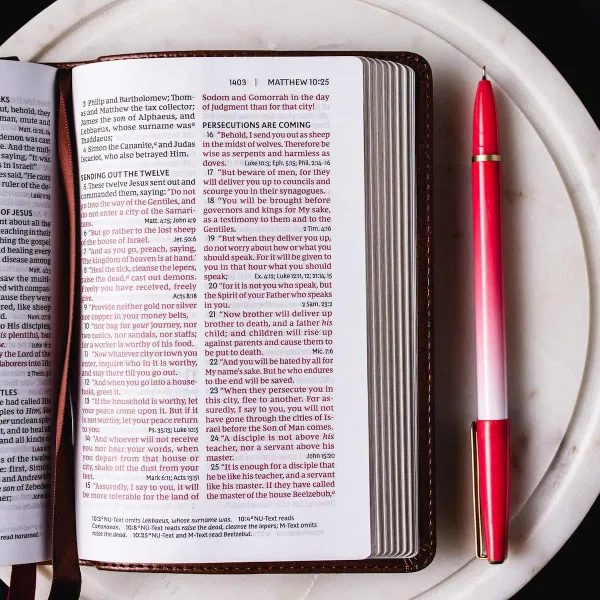 KS
ut, behold, they
man, mute and
demon was cast
And the mul-
saying, “It was
s in Israel!”
es said, “He casts
ruler of the de-
OF JESUS
ent about all the
eaching in their
hing the gospel
nd healing every
disease among
saw the multi-
ed with compas-
cause they were
red, like sheep
o His disciples,
s plentiful, but
y the Lord of the
laborers into His
TLES
e had called His
ples to Him, He
er unclean spir-
and all kinds
1403 | MATTHEW 10:25
3 Philip and Bartholomew; Thom-
as and Matthew the tax collector;
James the son of Alphaeus, and
Lebbaeus, whose surname wasᵃ
Thaddaeus;
4 Simon the Cananite,ᵃ and Judas
Iscariot, who also betrayed Him.
SENDING OUT THE TWELVE
5 These twelve Jesus sent out and
commanded them, saying: “Do not
go into the way of the Gentiles, and
do not enter a city of the Samari-
tans. Matt. 4:15; John 4:9
6 “But go rather to the lost sheep
of the house of Israel. Jer. 50:6
7 “And as you go, preach, saying,
‘The kingdom of heaven is at hand.’
8 “Heal the sick, cleanse the lepers,
raise the dead,ᵃ cast out demons.
Freely you have received, freely
give. Acts 8:18
9 “Provide neither gold nor silver
nor copper in your money belts,
10 “nor bag for your journey, nor
two tunics, nor sandals, nor staffs;
for a worker is worthy of his food.
11 “Now whatever city or town you
enter, inquire who in it is worthy,
and stay there till you go out.
12 “And when you go into a house-
hold, greet it.
13 “If the household is worthy, let
your peace come upon it. But if it
is not worthy, let your peace return
to you. Ps. 35:13; Luke 10:5
14 “And whoever will not receive
you nor hear your words, when
you depart from that house or
city, shake off the dust from your
feet. Mark 6:11; Acts 13:51
15 “Assuredly, I say to you, it will
be more tolerable for the land of
Sodom and Gomorrah in the day
of judgment than for that city!
PERSECUTIONS ARE COMING
16 “Behold, I send you out as sheep
in the midst of wolves. Therefore be
wise as serpents and harmless as
doves. Luke 10:3; Eph. 5:15; Phil. 2:14–16
17 “But beware of men, for they
will deliver you up to councils and
scourge you in their synagogues.
18 “You will be brought before
governors and kings for My sake,
as a testimony to them and to the
Gentiles. 2 Tim. 4:16
19 “But when they deliver you up,
do not worry about how or what you
should speak. For it will be given to
you in that hour what you should
speak; Ex. 4:12; Luke 12:11, 12; 21:14, 15
20 “for it is not you who speak, but
the Spirit of your Father who speaks
in you. 2 Sam. 23:2
21 “Now brother will deliver up
brother to death, and a father his
child; and children will rise up
against parents and cause them to
be put to death. Mic. 7:6
22 “And you will be hated by all for
My name’s sake. But he who endures
to the end will be saved.
23 “When they persecute you in
this city, flee to another. For as-
suredly, I say to you, you will not
have gone through the cities of Is-
rael before the Son of Man comes.
24 “A disciple is not above his
teacher, nor a servant above his
master. John 15:20
25 “It is enough for a disciple that
he be like his teacher, and a servant
like his master. If they have called
the master of the house Beelzebub,ᵃ
10:3 ᵃNU-Text omits Lebbaeus, whose surname was. 10:4 ᵃNU-Text reads
Cananaean. 10:8 ᵃNU-Text reads raise the dead, cleanse the lepers; M-Text omits
raise the dead. 10:25 ᵃNU-Text and M-Text read Beelzebul.